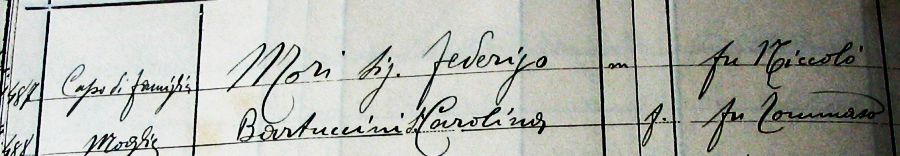 487 Capo di famiglia Mori sig. Federigo m fu Niccolò
488 Moglie Bartuccini Carolina f. fu Tommaso